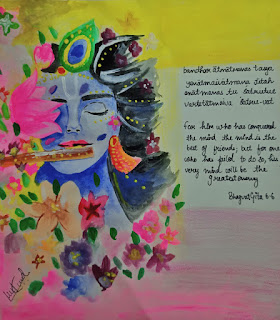 bandhur ātmātmanas tasya
yenātmaivātmanā jitaḥ
anātmanas tu śatrutve
vartetātmaiva śatru-vat
For him who has conquered
the mind, the mind is the
best of friends; but for one
who has failed to do so, his
very mind will be the
greatest enemy
Bhagvat Gita 6-6